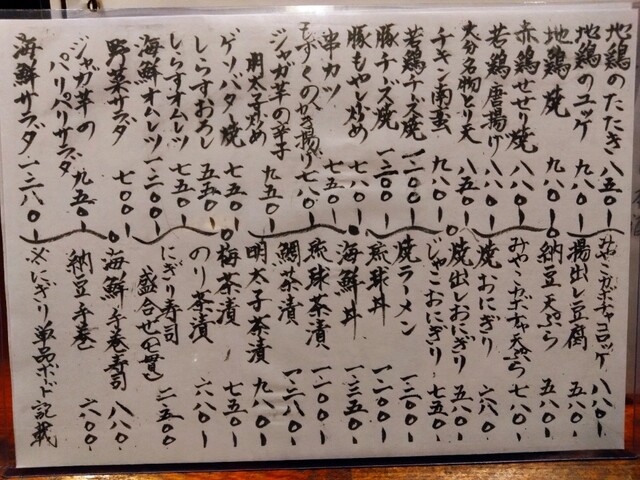 地鶏のたたき 八五〇ー
地鶏のユッケ 九八〇ー
地鶏焼 九八〇ー
赤鶏せせり焼 八八〇ー
若鶏唐揚げ 八八〇ー
大分名物とり天 八五〇ー
チキン南蛮 九八〇ー
若鶏チーズ焼 一二〇〇ー
豚チーズ焼 一三〇〇ー
豚もやし炒め 七八〇ー
串カツ 七五〇ー
もずくのかき揚げ 七八〇ー
ジャガ芋の辛子
明太子炒め 九五〇ー
ゲソバター焼 七五〇ー
しらすおろし 五五〇ー
しらすオムレツ 七五〇ー
海鮮オムレツ 一二〇〇ー
野菜サラダ 七〇〇ー
ジャガ芋の
パリパリサラダ 九五〇ー
海鮮サラダ 一三八〇ー
みやこカボチャコロッケ 八八〇ー
揚出し豆腐 五八〇ー
納豆天ぷら 五八〇ー
みやこカボチャ天ぷら 七八〇ー
焼おにぎり 六八〇ー
焼出しおにぎり 五八〇ー
じゃこおにぎり 七五〇ー
焼ラーメン 一二〇〇ー
琉球丼 一二〇〇ー
海鮮丼 一三五〇ー
琉球茶漬 一二〇〇ー
鯛茶漬 一二八〇ー
明太子茶漬 九八〇ー
梅茶漬 七五〇ー
のり茶漬 六八〇ー
にぎり寿司
盛合せ(七貫) 二五〇〇
海鮮手巻寿司 八八〇ー
納豆手巻 六〇〇ー
※にぎり単品ボード記載